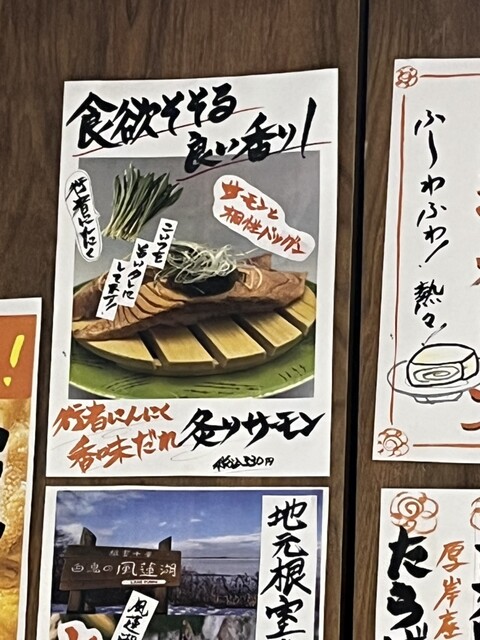 食欲そそる
良い香り!
行者にんにく
サーモンと
相性バツグン
こいつを
旨いタレに
して来た!!
行者にんにく
香味だれ
炙りサーモン
税込330円
ふーわふわ!熱々!
地元根室
白鳥の風蓮湖
LAKE FUREN
厚岸産